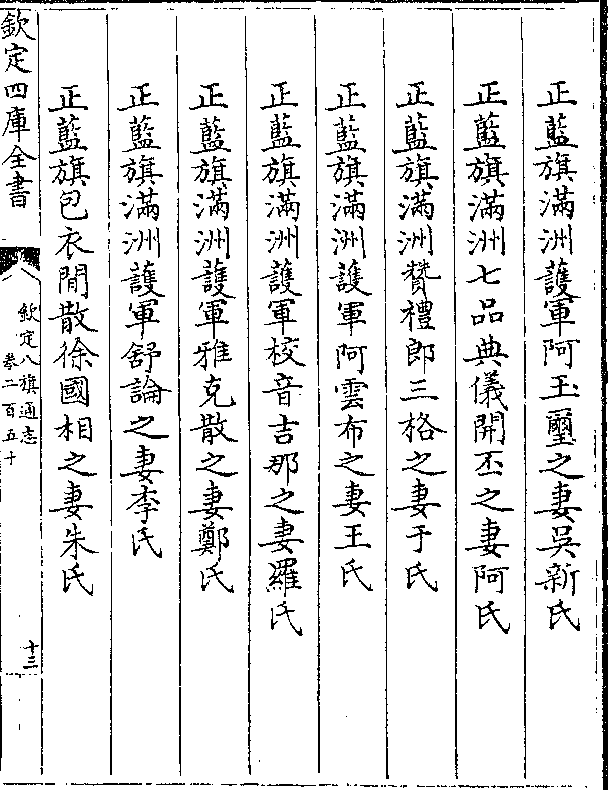 正藍旗滿洲護軍阿玉璽之妻吳新氏
正藍旗滿洲七品典儀開丕之妻阿氏
正藍旗滿洲贊禮郎三格之妻于氏
正藍旗滿洲護軍阿雲布之妻王氏
正藍旗滿洲護軍校音吉那之妻羅氏
正藍旗滿洲護軍雅克散之妻鄭氏
正藍旗滿洲護軍舒論之妻李氏
正藍旗包衣閒散徐國相之妻朱氏
欽定四庫全書
欽定八旗通志
卷二百五十
十三